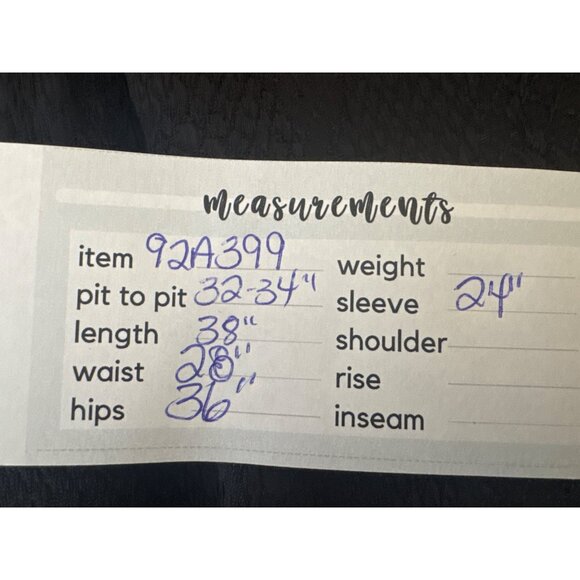 measurements
item 92A399
pit to pit 32-34"
length 38"
waist 28"
hips 36"
weight
sleeve 24"
shoulder
rise
inseam